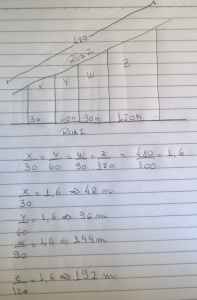 480
RUA 2
X Y W Z
30 60m 90m 120m
RUA 1
X/30 = Y/60 = W/90 = Z/120 = 480/300 = 1,6
X/30 = 1,6 ⇒ 48 m
Y/60 = 1,6 ⇒ 96 m
W/90 = 1,6 ⇒ 144 m
Z/120 = 1,6 ⇒ 192 m